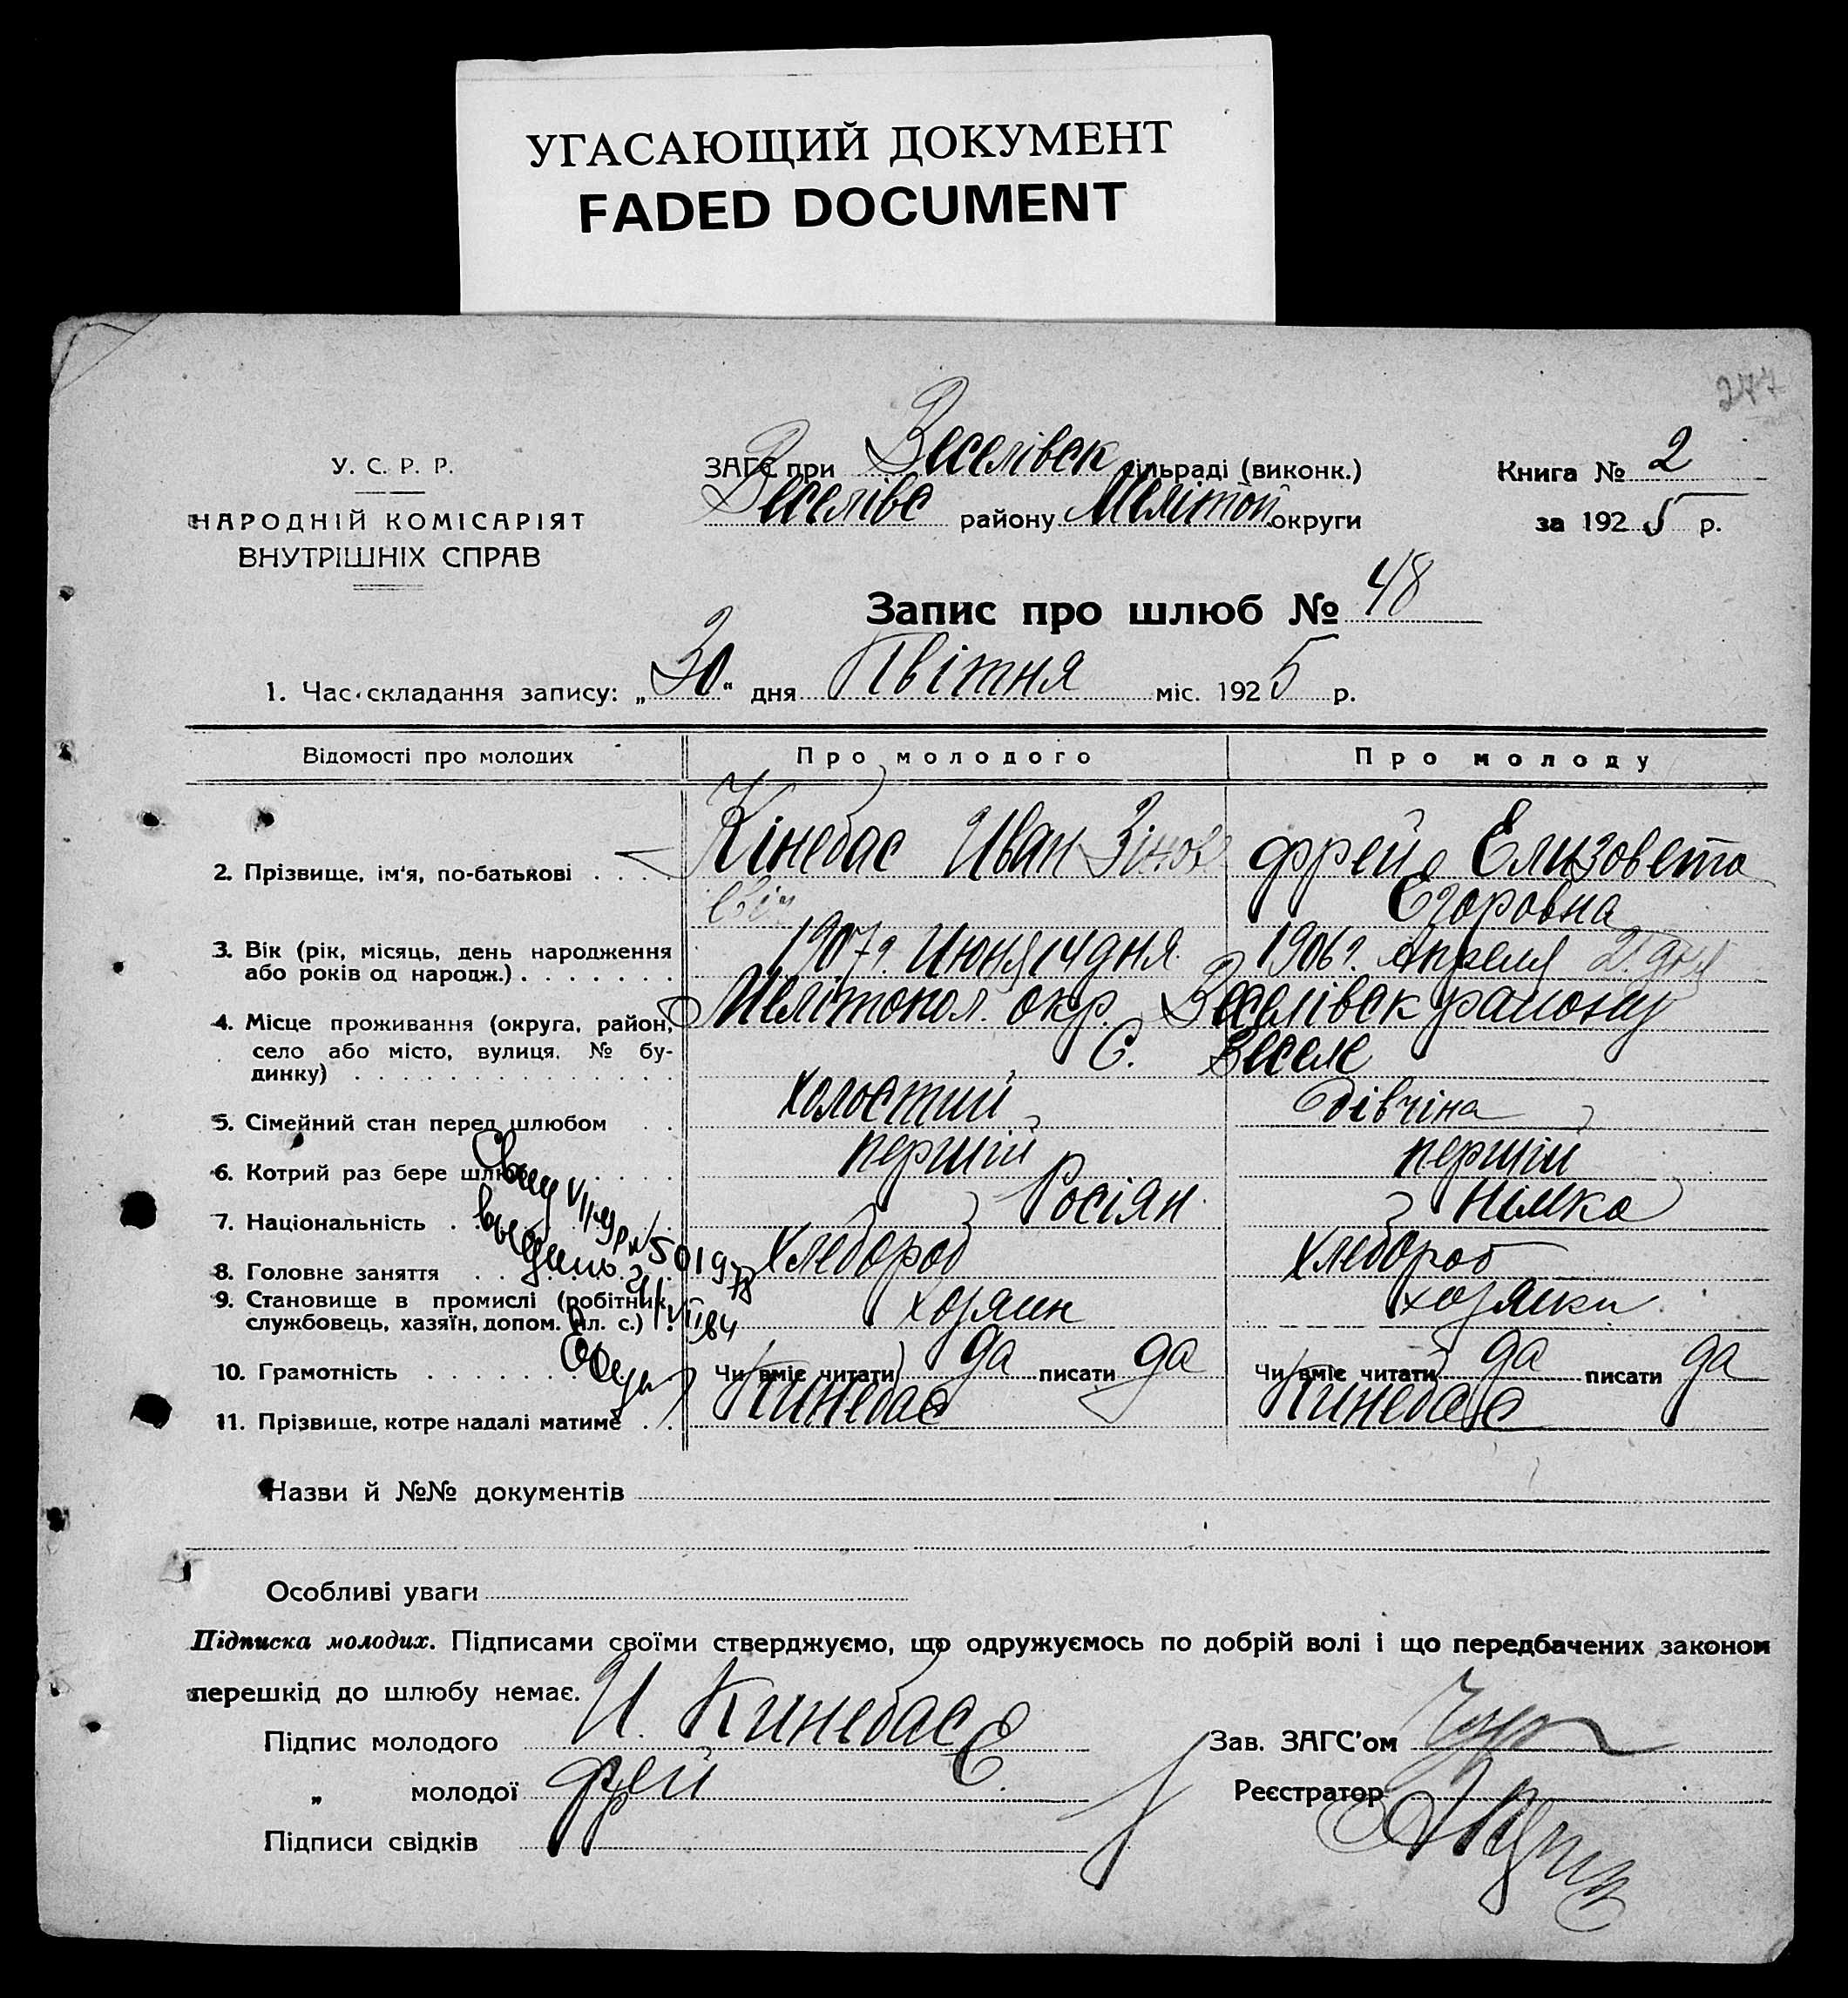 УГАСАЮЩИЙ ДОКУМЕНТ
FADED DOCUMENT
277
У. С. Р. Р.
НАРОДНІЙ КОМІСАРІЯТ
ВНУТРІШНІХ СПРАВ
ЗАГС при Веселівск сільраді (виконк.)
Веселівс району Мелітоп округи
Книга № 2
за 1925 р.
Запис про шлюб № 48
1. Час складання запису: „30" дня Квітня міс. 1925 р.
Відомості про молодих
Про молодого
Про молоду
2. Прізвище, ім'я, по-батькові . . . .
Кінебас Иван Зінов
євіч
Фрей Елизовета
Егоровна
3. Вік (рік, місяць, день народження
або років од народж.) . . . . . . .
1907 г. Июня 14 дня
1906 г. Апреля 2 дня
4. Місце проживання (округа, район,
село або місто, вулиця, № бу-
динку) . . . . . . . . . . . . . .
Мелітопол. окр. Веселівск району
С. Веселе
5. Сімейний стан перед шлюбом . .
холостий
дівчіна
6. Котрий раз бере шлюб . . . .
першій
першій
7. Національність .
Росіян
Німка
8. Головне заняття . . .
Хлебороб
Хлебороб
9. Становище в промислі (робітник,
службовець, хазяїн, допом. чл. с.) .
хозяин
хозяйки
10. Грамотність . . . . . . .
Чи вміє читати да писати да
Чи вміє читати да писати да
11. Прізвище, котре надалі матиме . .
Кинебас
Кинебас
Назви й №№ документів
Особливі уваги
Підписка молодих. Підписами своїми стверджуємо, що одружуємось по добрій волі і що передбачених законом
перешкід до шлюбу немає.
Підпис молодого И. Кинебас
„ молодої Фрей Е.
Підписи свідків
Зав. ЗАГС'ом
Реєстратор